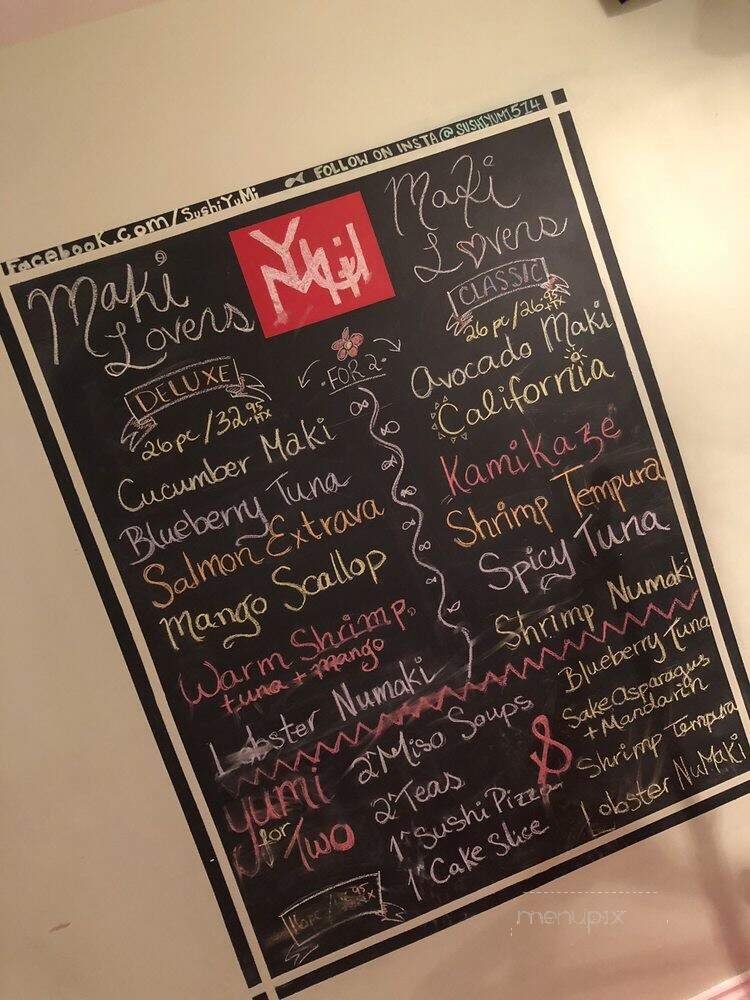 Facebook.com/SushiYuMi FOLLOW ON INSTA@SUSHIYUMI514
Maki
Lovers
DELUXE
26pc/32.95+tx
Cucumber Maki
Blueberry Tuna
Salmon Extrava
Mango Scallop
Warm Shrimp,
tuna + mango
Lobster Numaki
FOR 2
Maki
Lovers
CLASSIC
26pc/26.95+tx
Avocado Maki
California
Kamikaze
Shrimp Tempura
Spicy Tuna
Shrimp Numaki
Yumi
for
Two
2 Miso Soups
2 Teas
1 Sushi Pizza
1 Cake Slice
&
Blueberry Tuna
Sake Asparagus
+ Mandarin
Shrimp Tempura
Lobster NuMaki
menupix